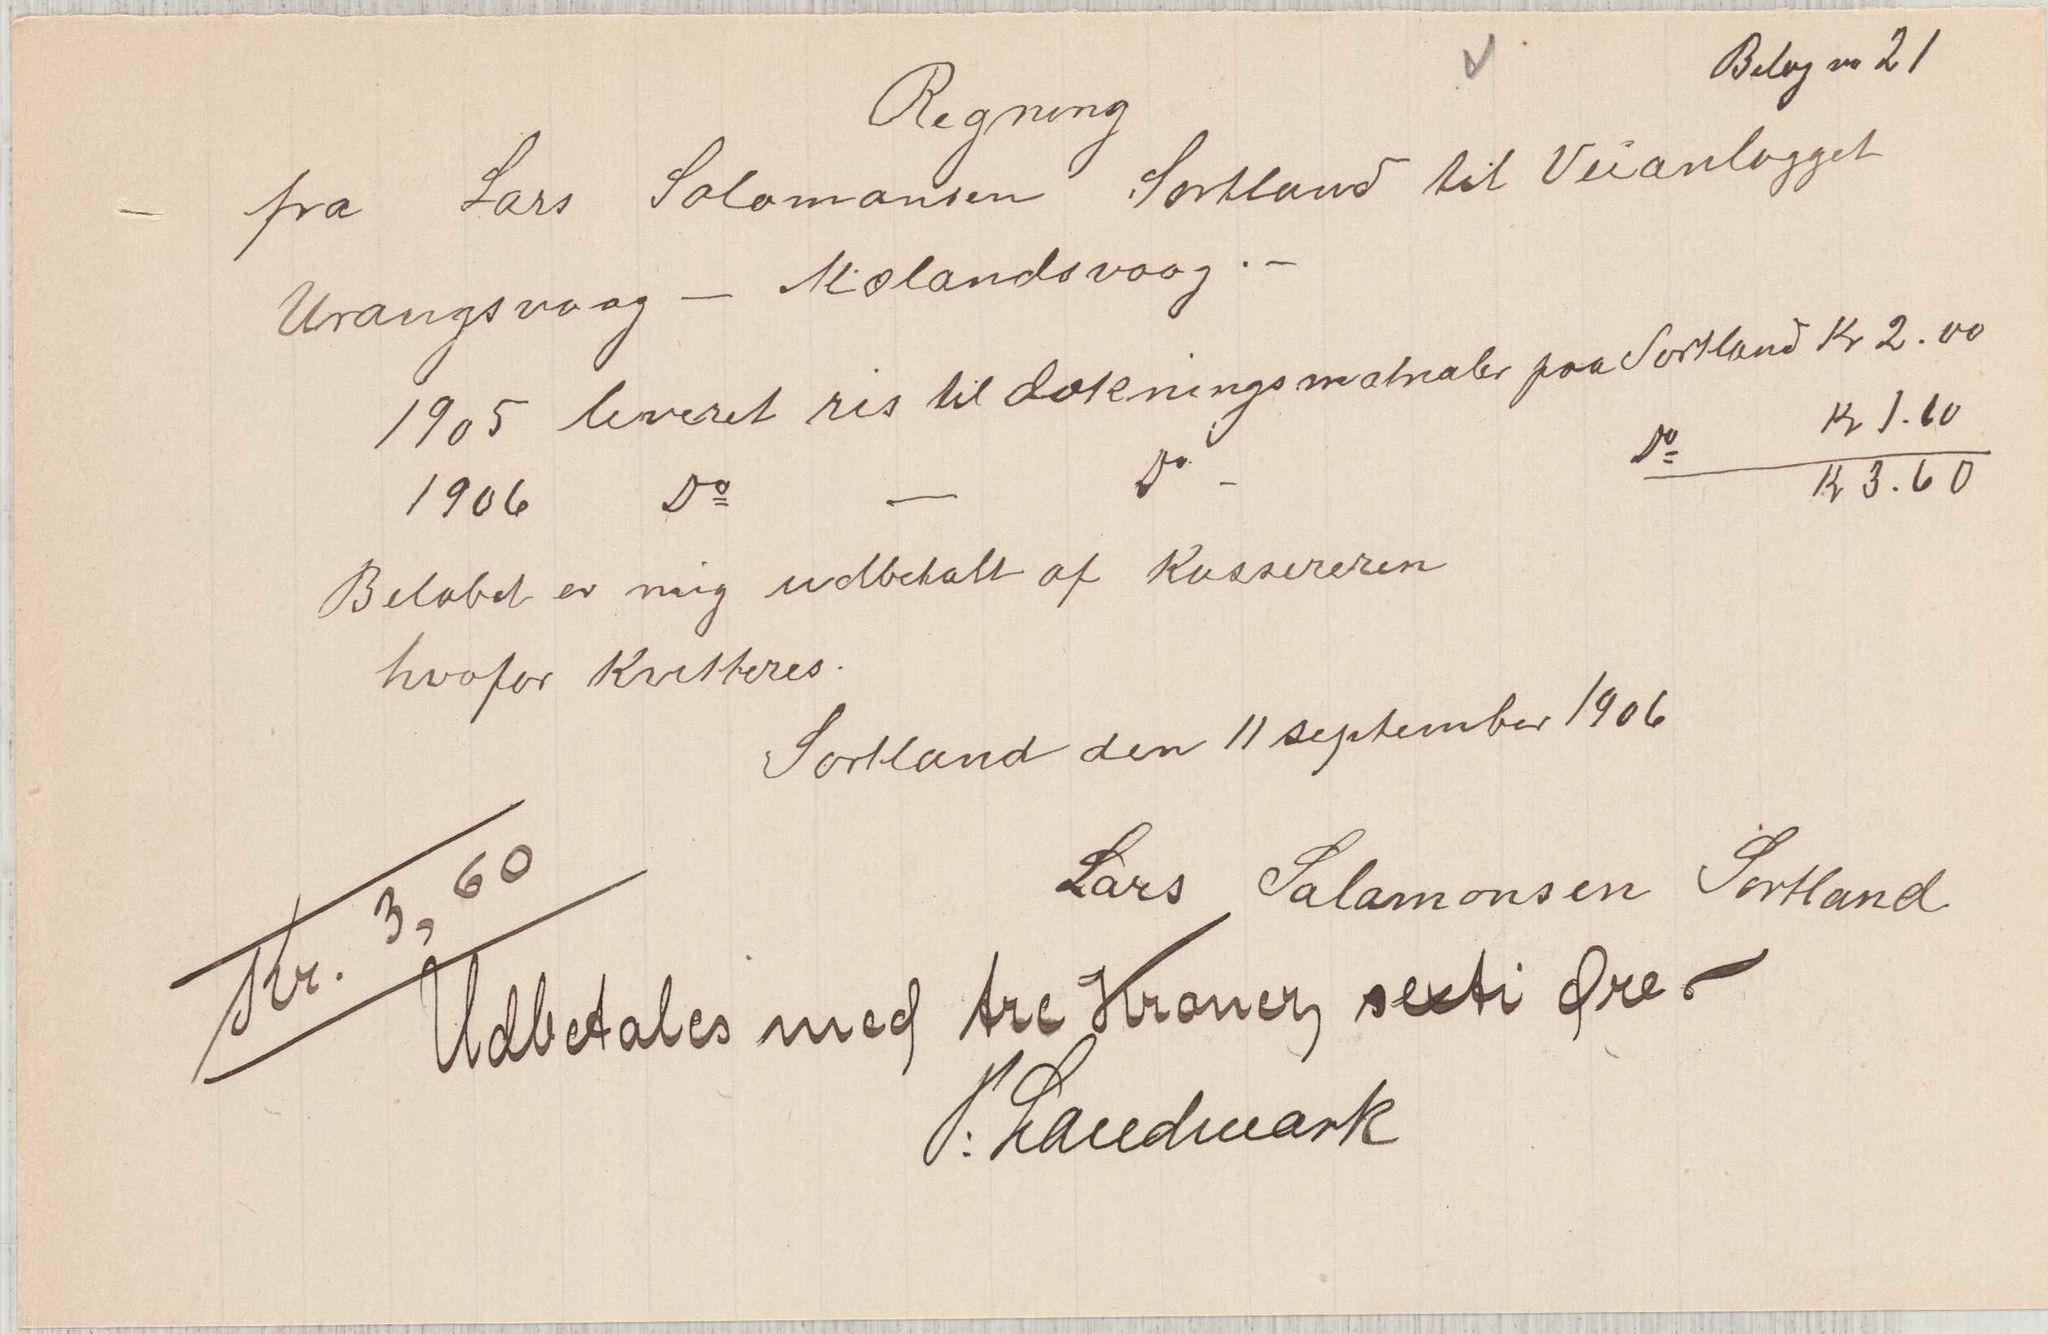 Belag no 21
Regning
fra Lars Salamonsen Sortland til Veianlægget
Urangsvaag — Mælandsvaag. —
1905 leveret ris til dækningsmatrialer paa Sortland Kr 2.00
1906 Do — Do - Do Kr 1.60
Kr 3.60
Beløbet er mig udbetalt af Kassereren
hvofor Kvitteres.
Sortland den 11 september 1906
Lars Salamonsen Sortland
Kr. 3,60
Udbetales med tre Kroner, sexti Øre.—
P. Landmark